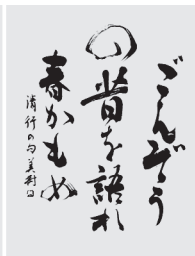 ごんぞう
の昔を語れ
春かもめ
清行の句 美村曰